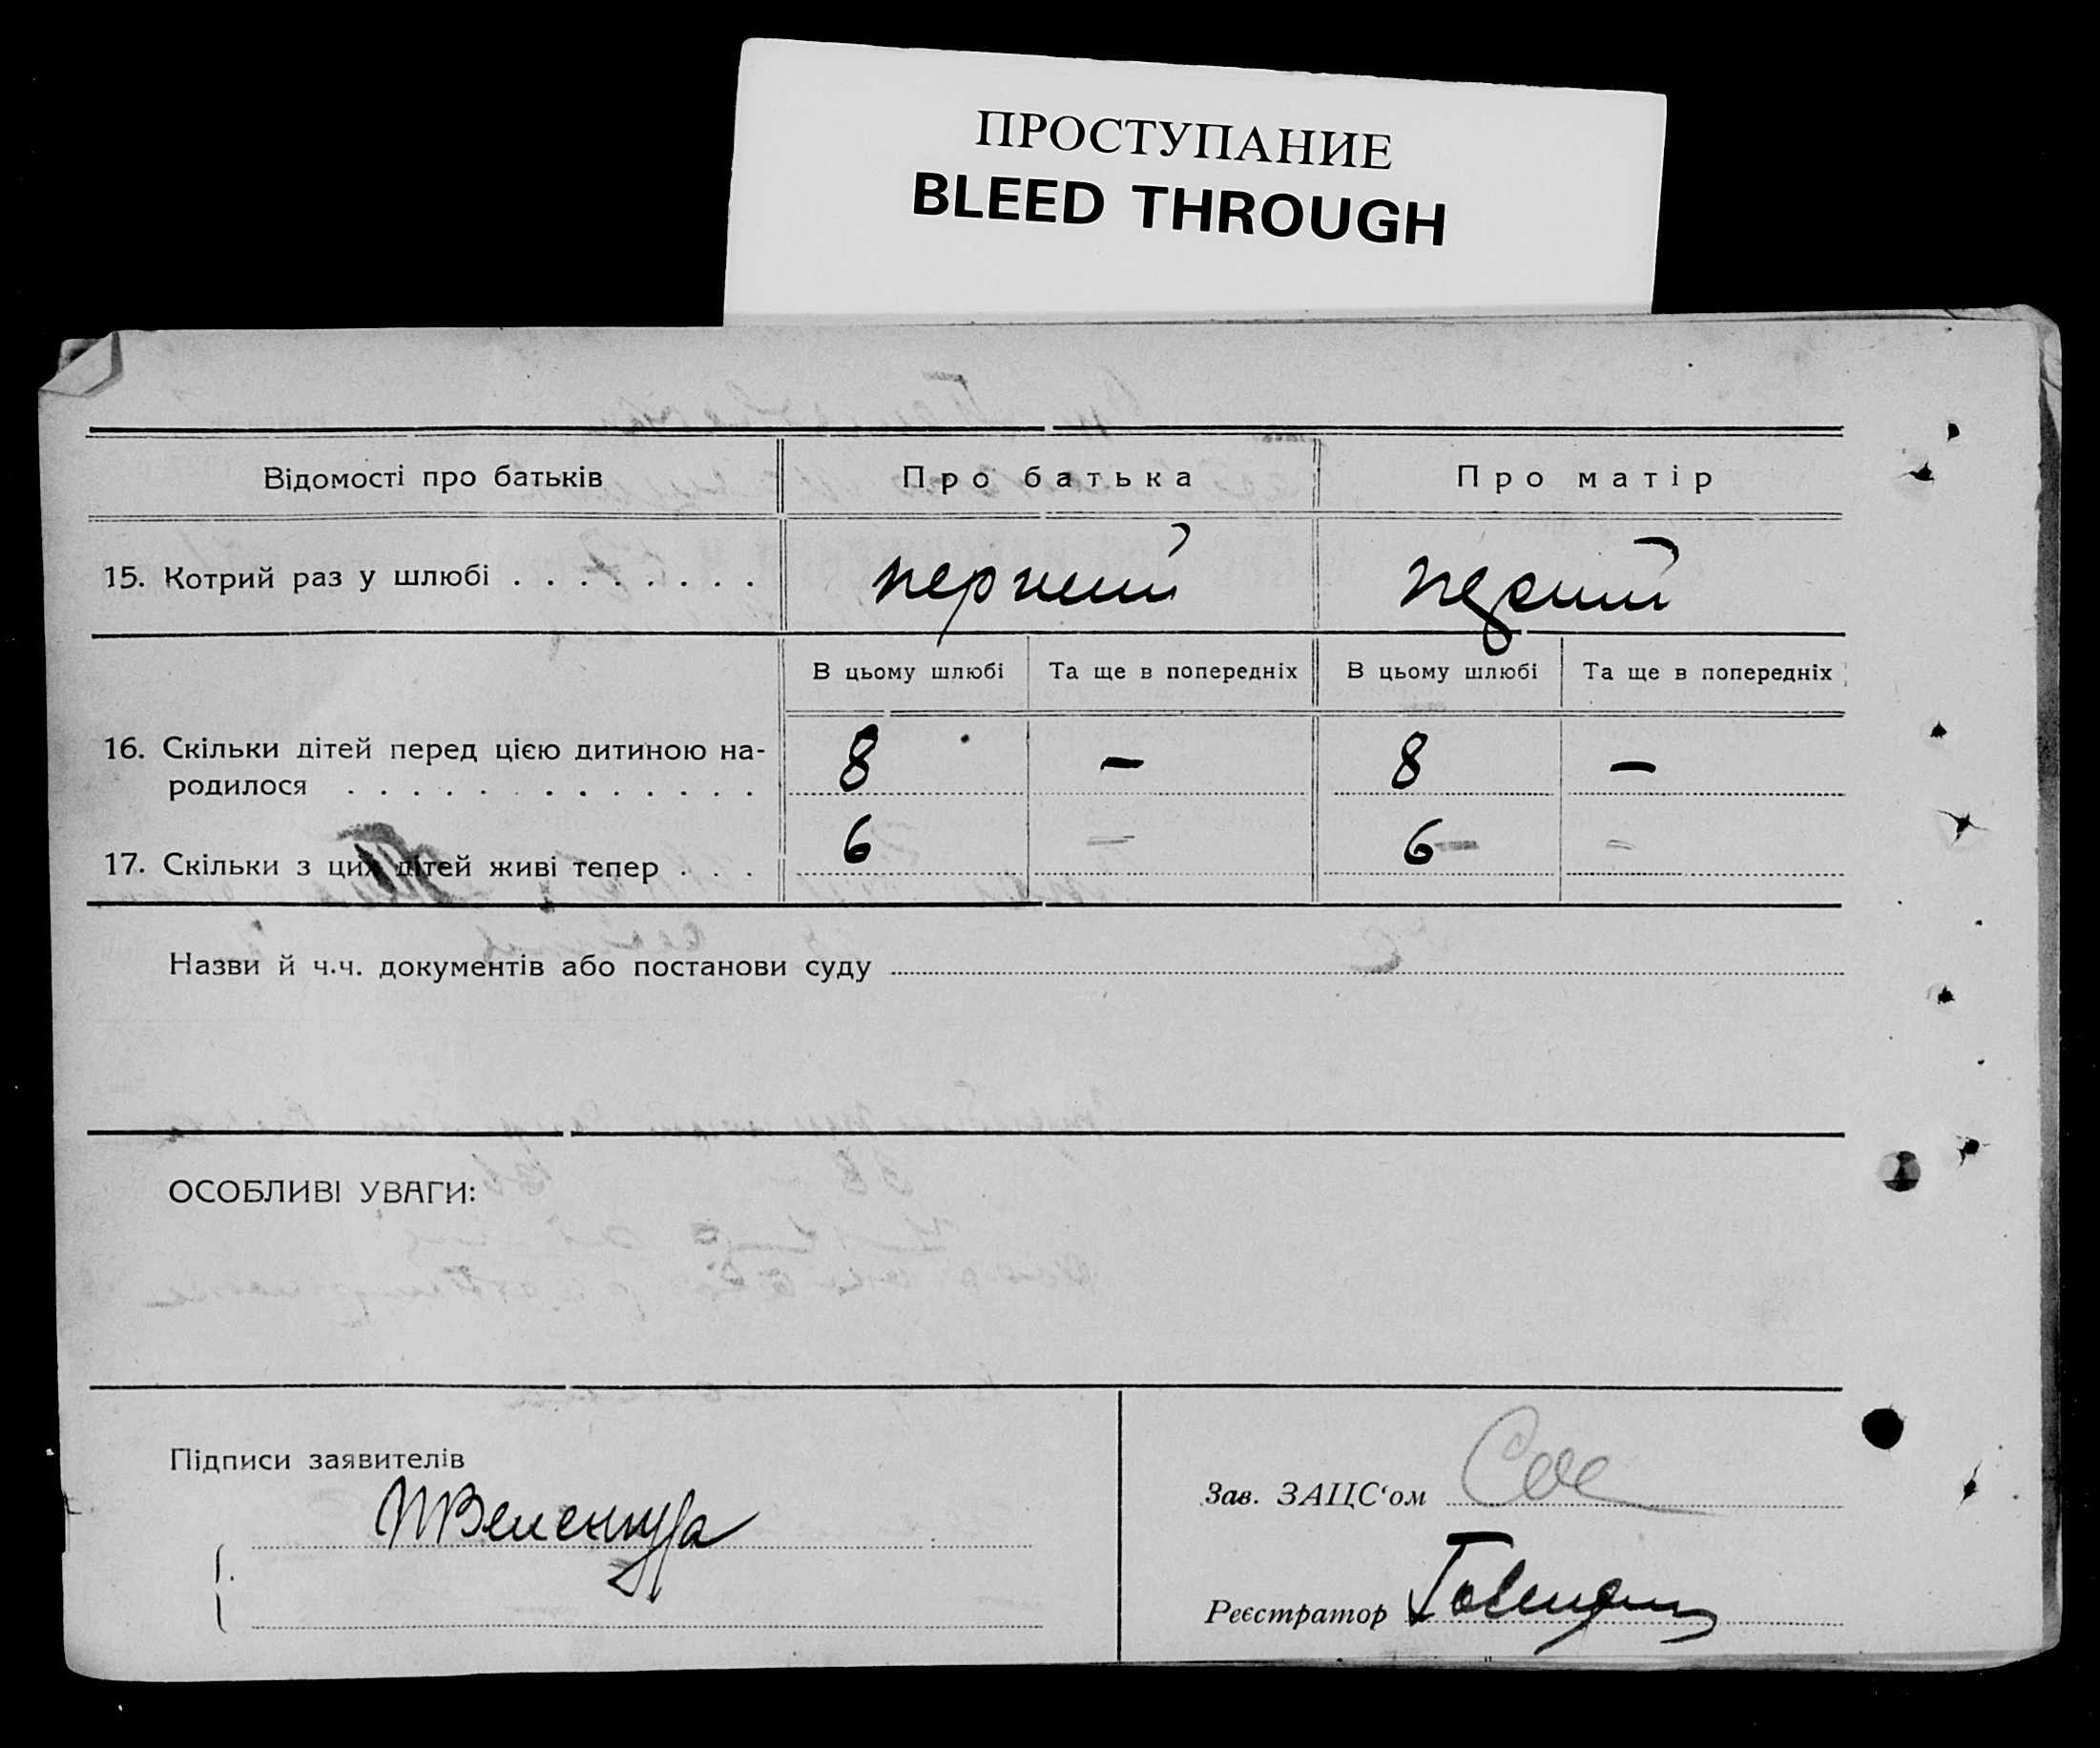 ПРОСТУПАНИЕ
BLEED THROUGH
Відомості про батьків
Про батька
Про матір
15. Котрий раз у шлюбі . . . . . . . .
перший
перший
В цьому шлюбі
Та ще в попередніх
В цьому шлюбі
Та ще в попередніх
16. Скільки дітей перед цією дитиною на-
родилося . . . . . . . . . . . . .
8
—
8
—
17. Скільки з цих дітей живі тепер . . .
6
—
6
—
Назви й ч.ч. документів або постанови суду
ОСОБЛИВІ УВАГИ:
Підписи заявителів
Зав. ЗАЦС‘ом
Реєстратор